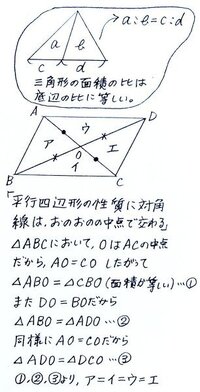 a:b=c:d
a b
c d
三角形の面積の比は
底辺の比に等しい。
A D
ウ
ア エ
O
イ
B C
「平行四辺形の性質に対角
線は、おのおのの中点で交わる」
△ABCにおいて、OはACの中点
だから、AO=CO したがって
△ABO=△CBO(面積が等しい)…①
また DO=BOだから
△ABO=△ADO…②
同様にAO=COだから
△ADO=△DCO…③
①、②、③より、ア=イ=ウ=エ